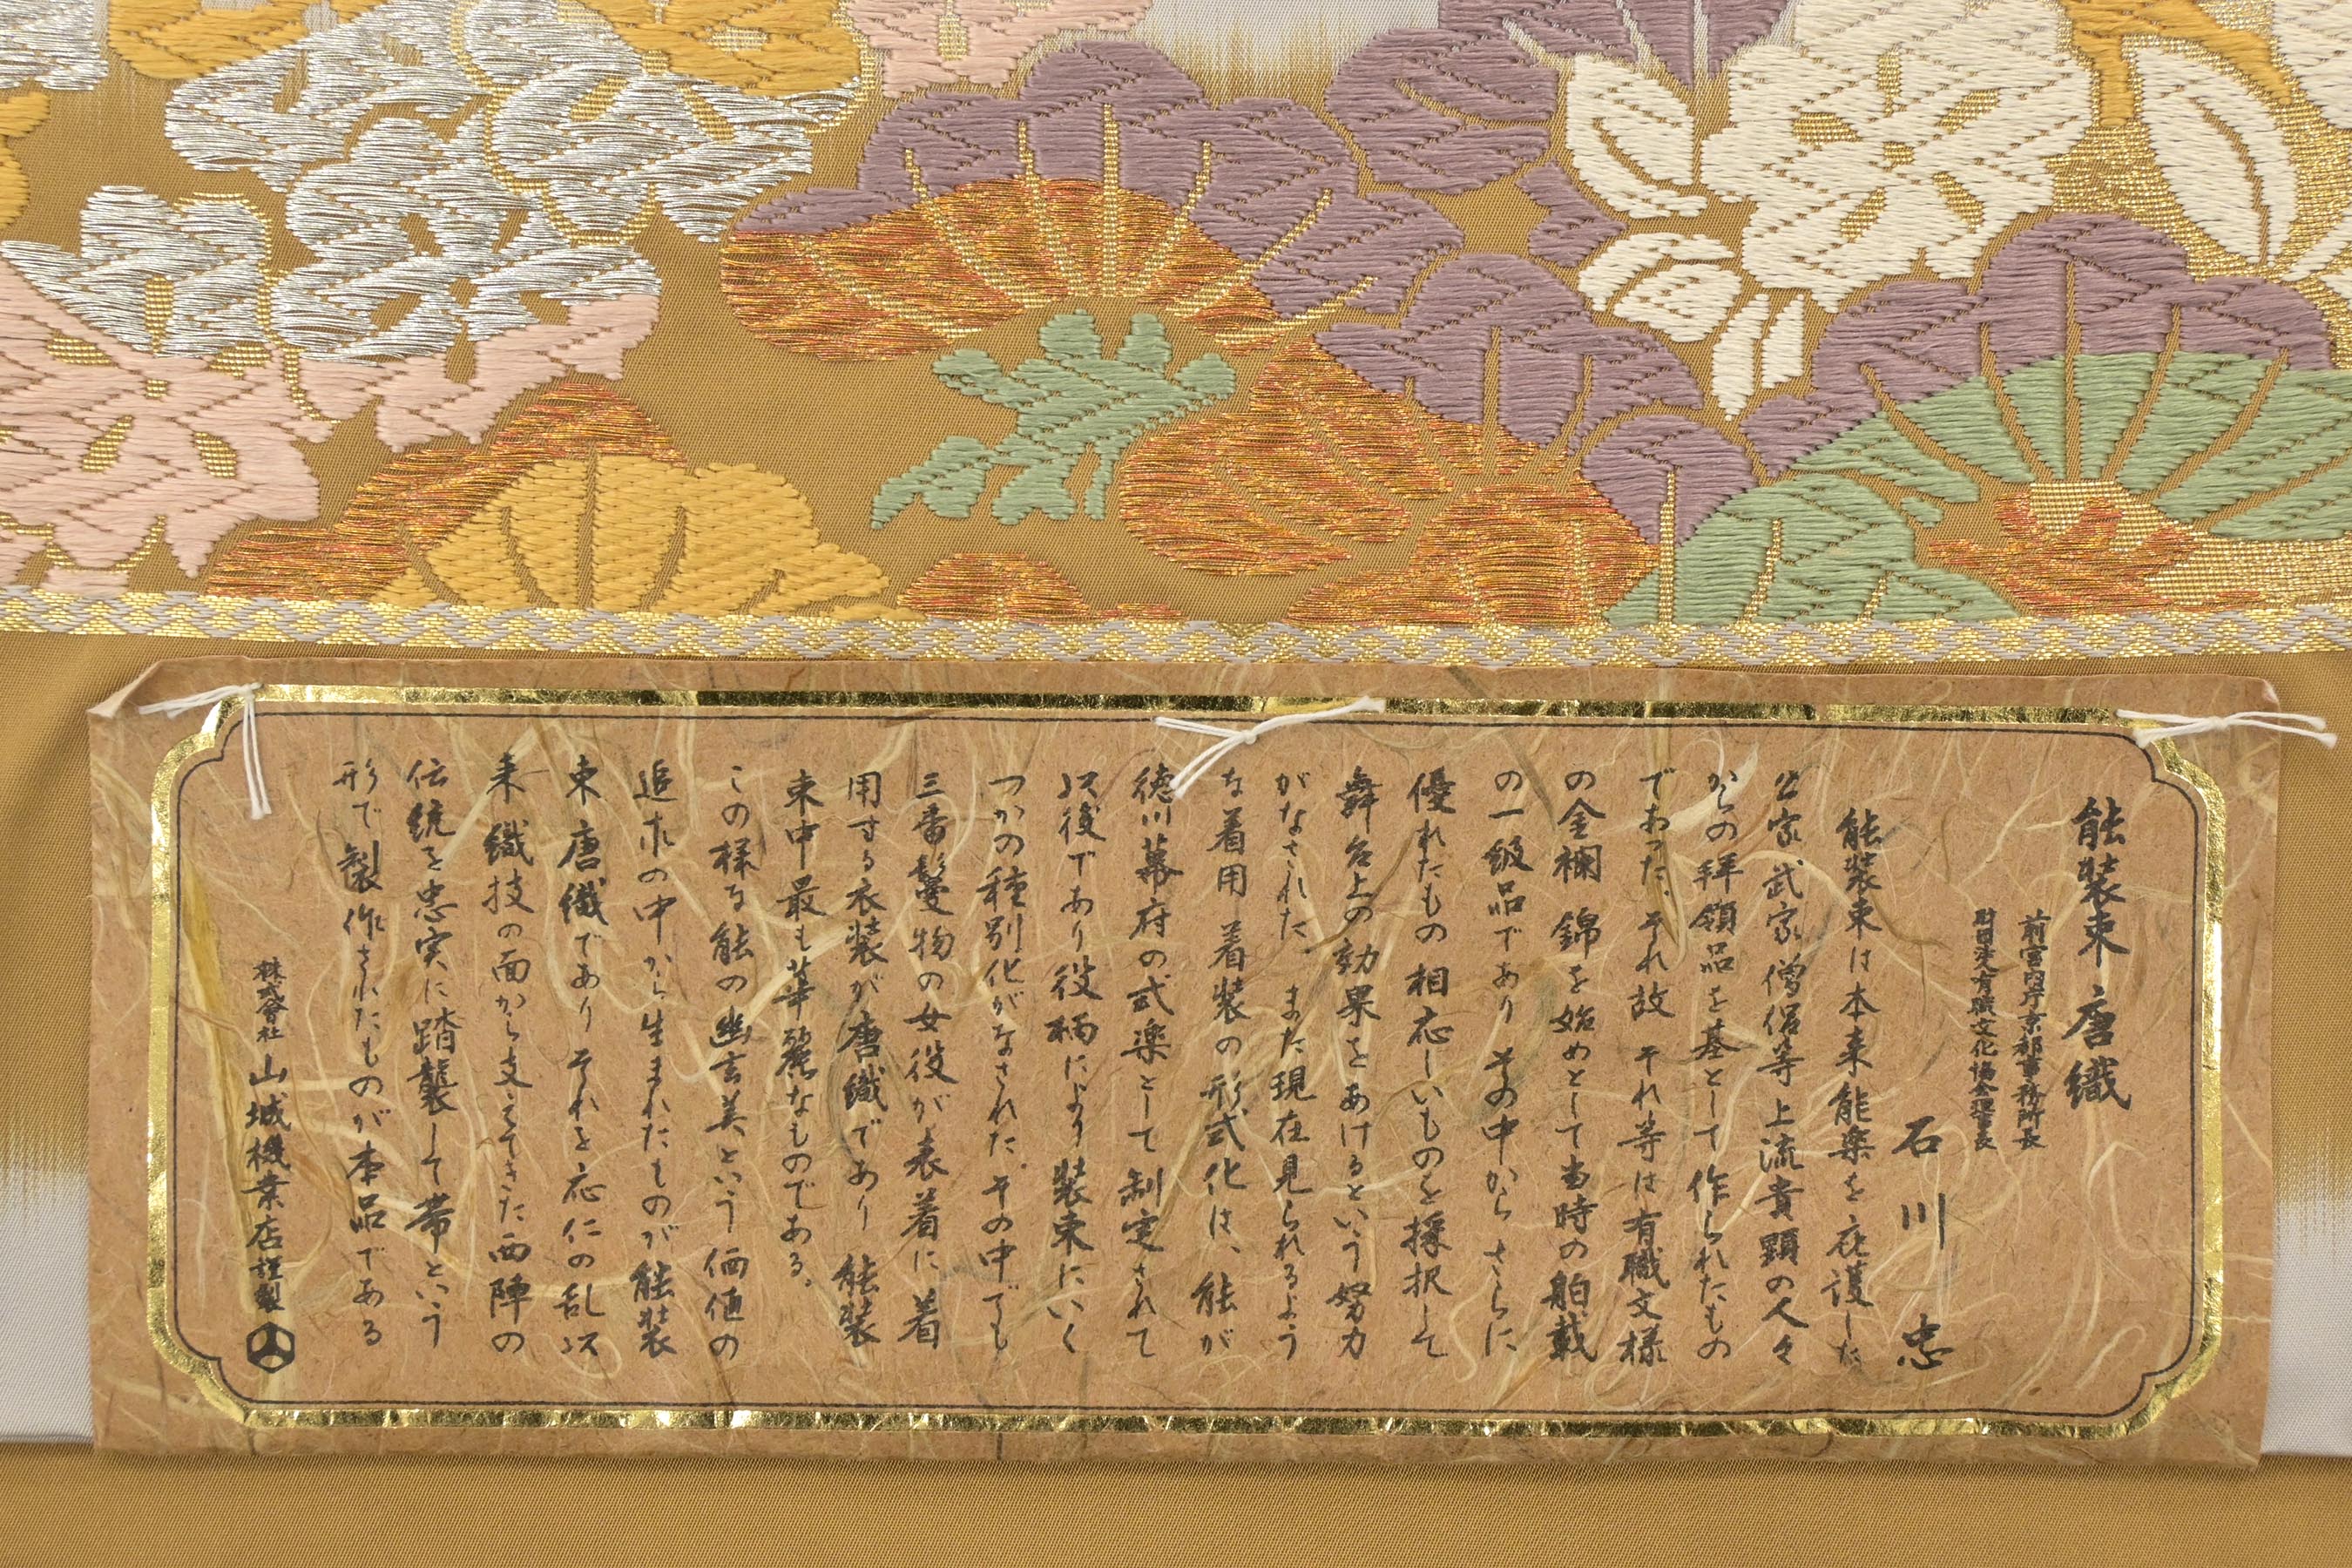 能装束 唐織
前宮内庁京都事務所長
財日本有職文化協会理事長
石川 忠
能装束は本来能楽を庇護した
公家 武家 僧侶等 上流貴顕の人々
からの拝領品を基として作られたもの
であった。それ故 それ等は有職文様
の金襴 錦を始めとして当時の舶載
の一級品であり その中から さらに
優れたもの相応しいものを採択して
舞台上の効果をあげるという努力
がなされた また現在見られるよう
な着用 着装の形式化は、能が
徳川幕府の式楽として制定されて
以後であり役柄により装束にいく
つかの種別化がなされた。その中でも
三番鬘物の女役が表着に着
用する衣装が唐織であり 能装
束中最も華麗なものである。
この様な能の幽玄美という価値の
追求の中から生まれたものが能装
束 唐織であり それを応仁の乱以
来 織技の面から支えてきた西陣の
伝統を忠実に踏襲して帯という
形で製作されたものが本品である
株式會社 山城機業店謹製